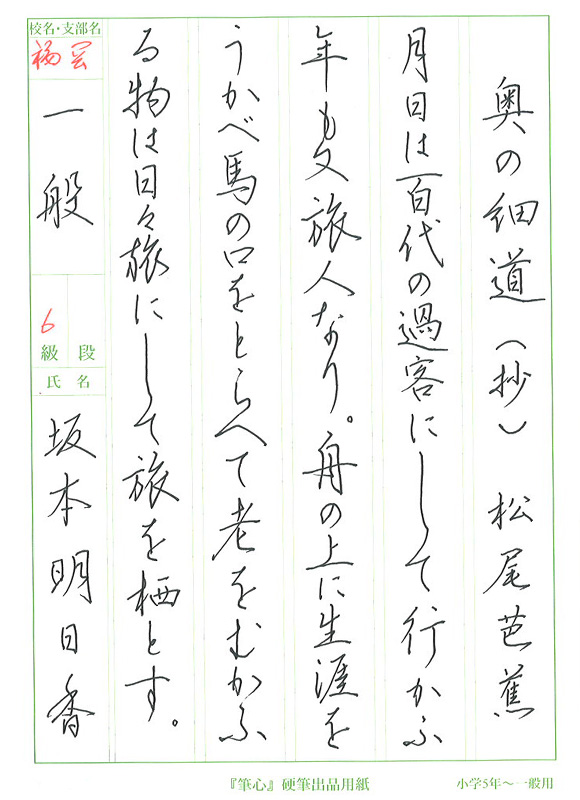 奥の細道（抄） 松尾芭蕉
月日は百代の過客にして行かふ
年も又旅人なり。舟の上に生涯を
うかべ馬の口をとらへて老をむかふ
る物は日々旅にして旅を栖とす。
校名・支部名
福岡
一般
6
級 段
氏名
坂本明日香
『筆心』硬筆出品用紙
小学5年〜一般用